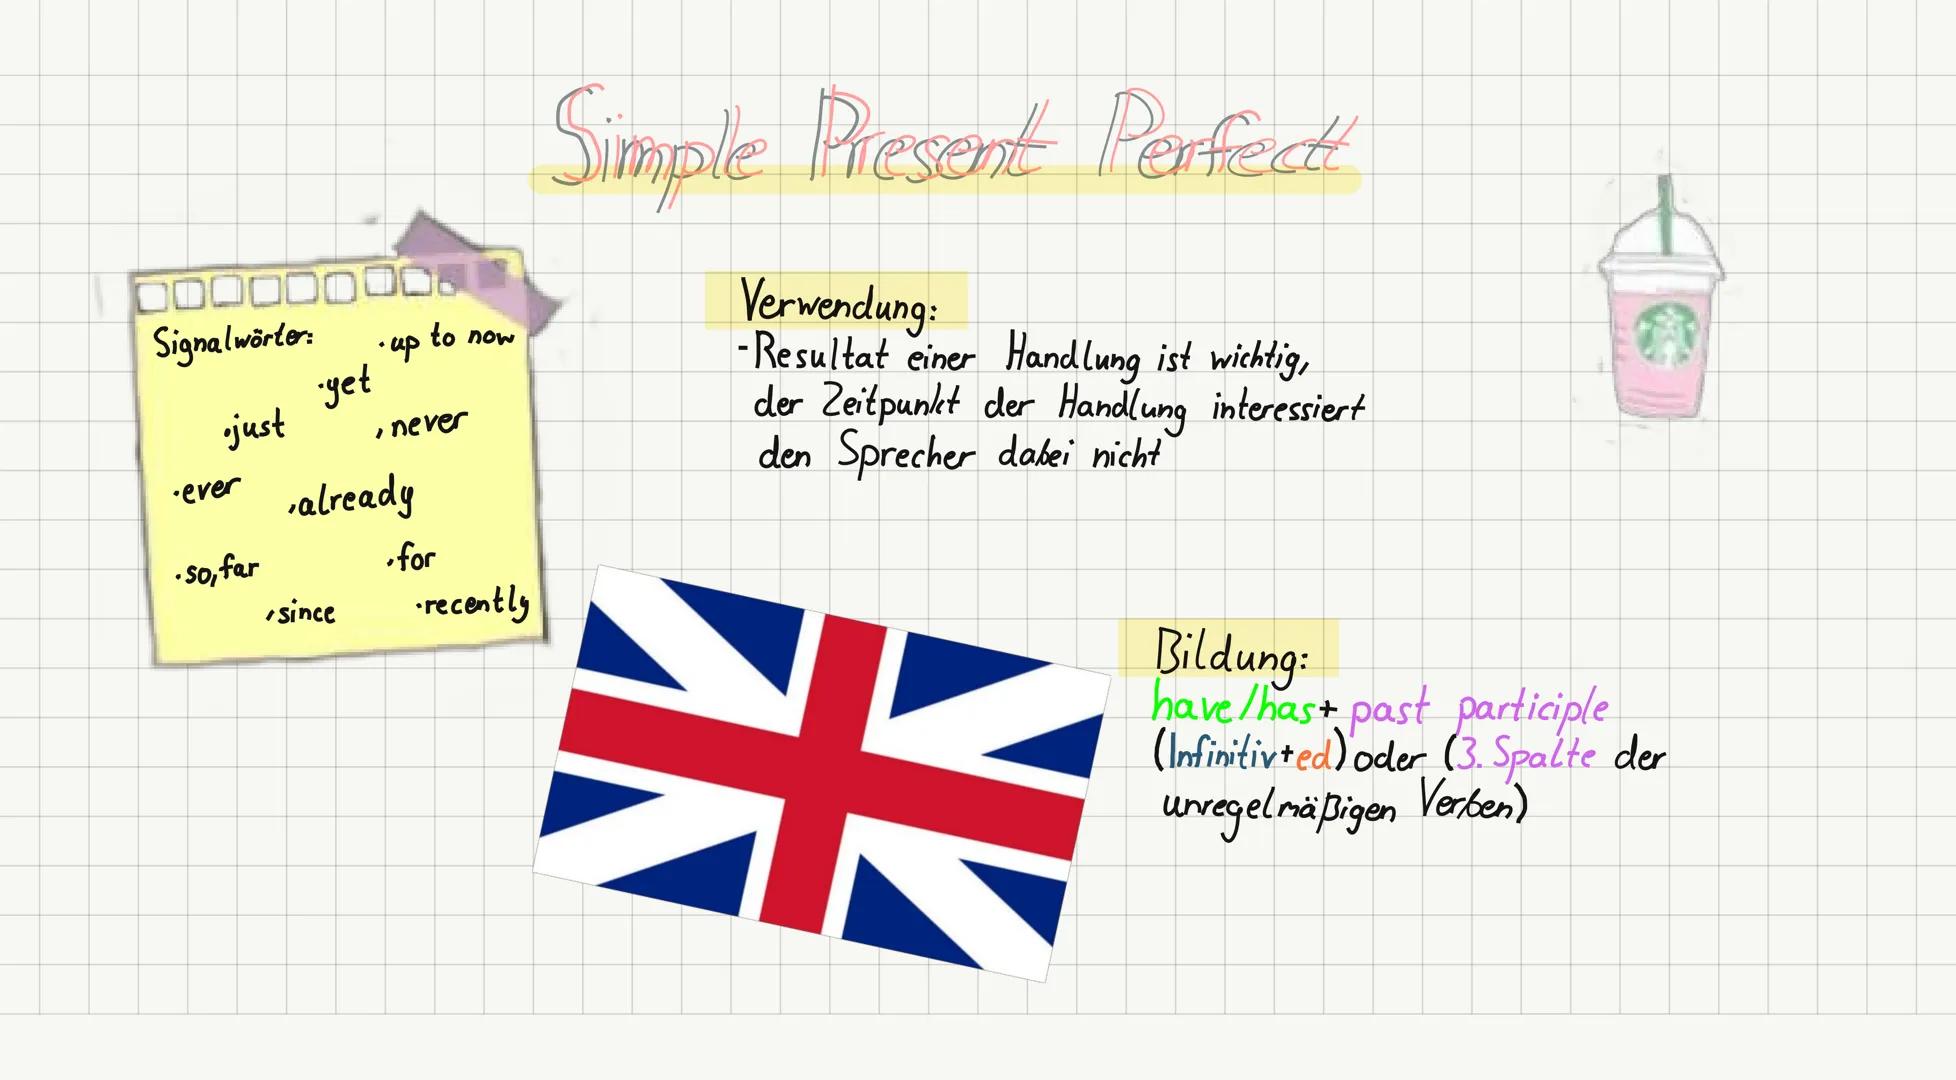 Simple Present Perfect
Signalwörter:
· up to now
· yet
· just
, never
· ever
, already
· so,far
· for
, since
· recently
Verwendung:
- Resultat einer Handlung ist wichtig,
der Zeitpunkt der Handlung interessiert
den Sprecher dabei nicht
Bildung:
have/has + past participle
(Infinitiv+ed) oder (3. Spalte der
unregelmäßigen Verben)